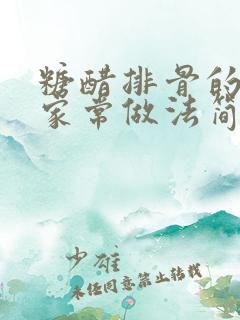 糖醋排骨的
家常做法简
少雄
未经同意禁止转载